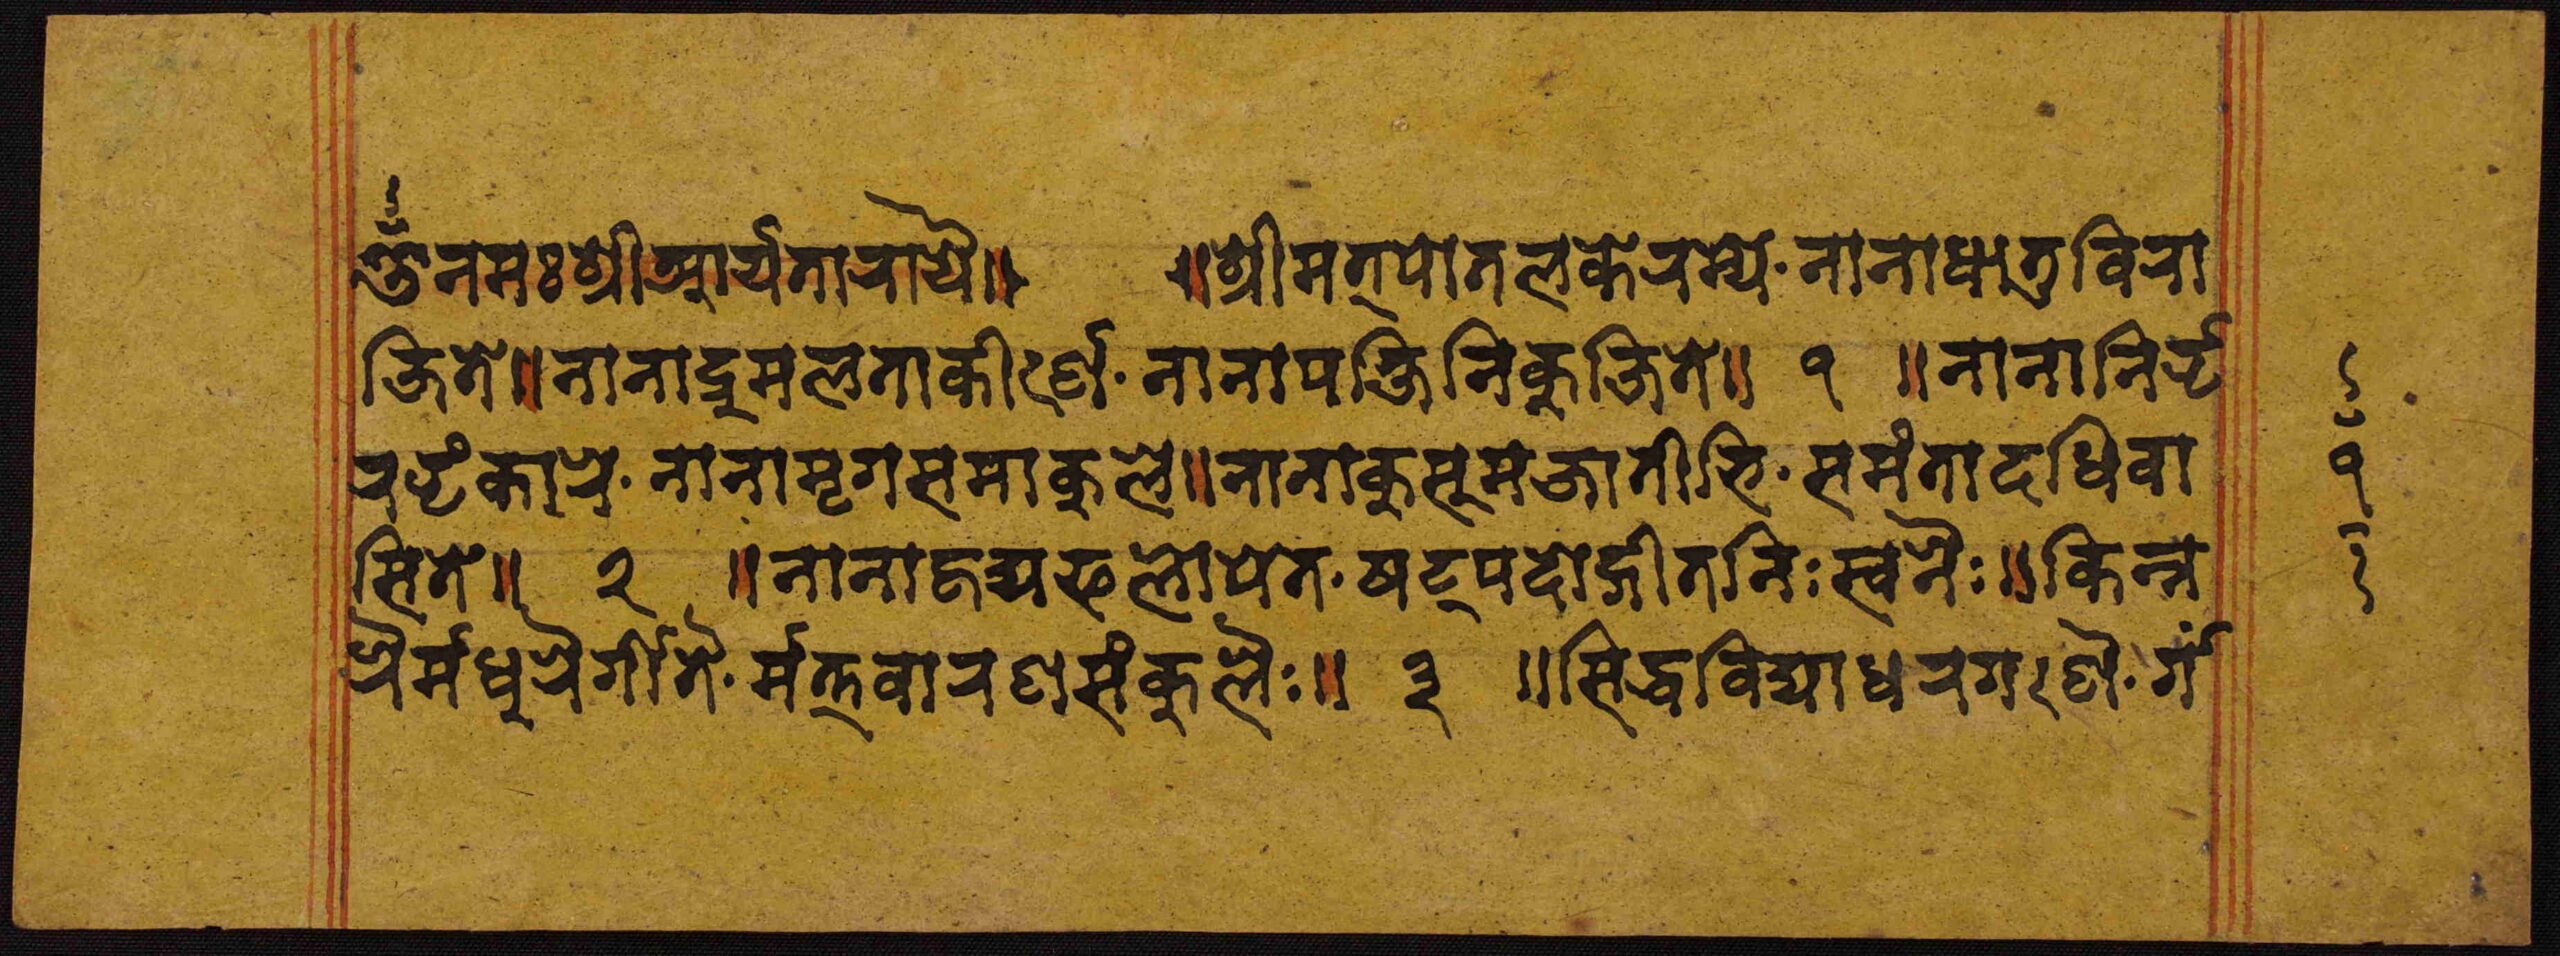 ॐ नमः श्रीआर्यतारायै॥ ॥श्रीमत्पोतलके रम्ये· नानाधातुविरा
जिते॥ नानाद्रुमलताकीर्णे· नानापक्षिनिकूजिते॥ १ ॥ नानानिर्झ
रझंकारे· नानामृगसमाकुले॥ नानाकुसुमजातीभि· समंतादधिवा
सिते॥ २ ॥ नानाहृद्यफलोपेत· षट्पदोद्गीतनिःस्वनैः॥ किन्न
रैर्मधुरैर्गीतै· र्मत्तवारणसंकुलैः॥ ३ ॥ सिद्धविद्याधरगणै· र्गं
१